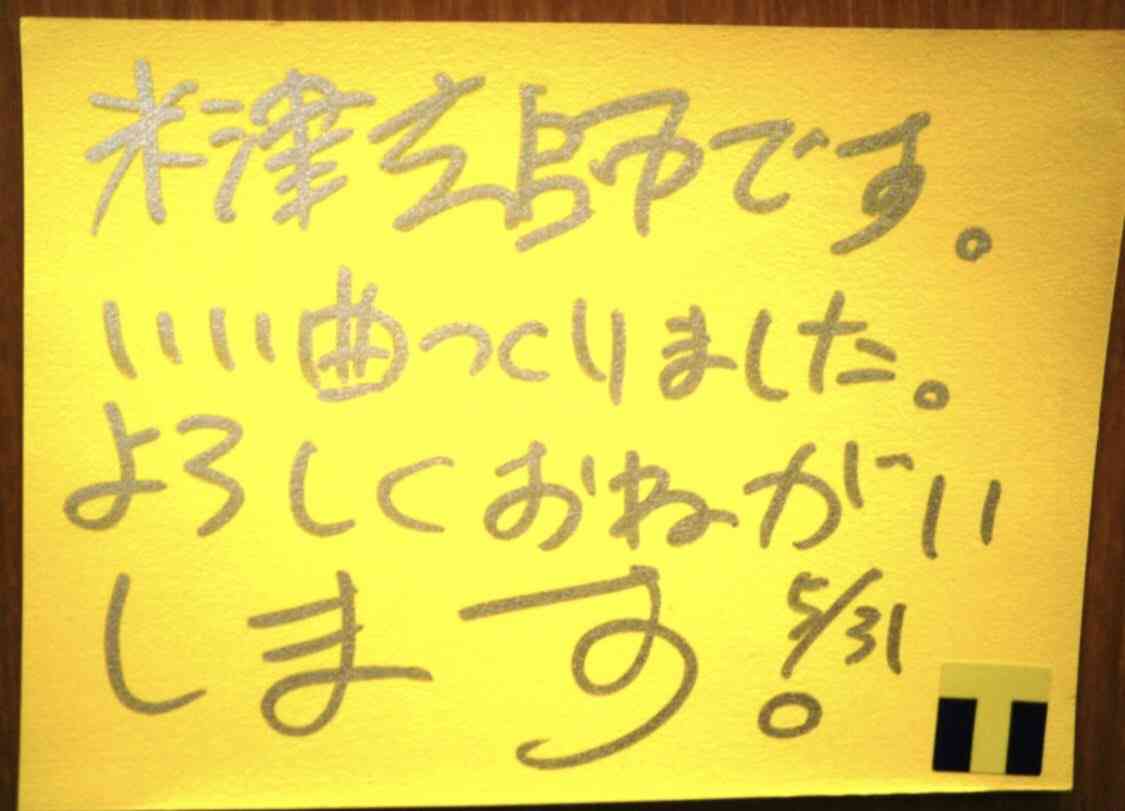 米津玄師です。
いい曲つくりました。
よろしくおねがい
します。
5/31
T